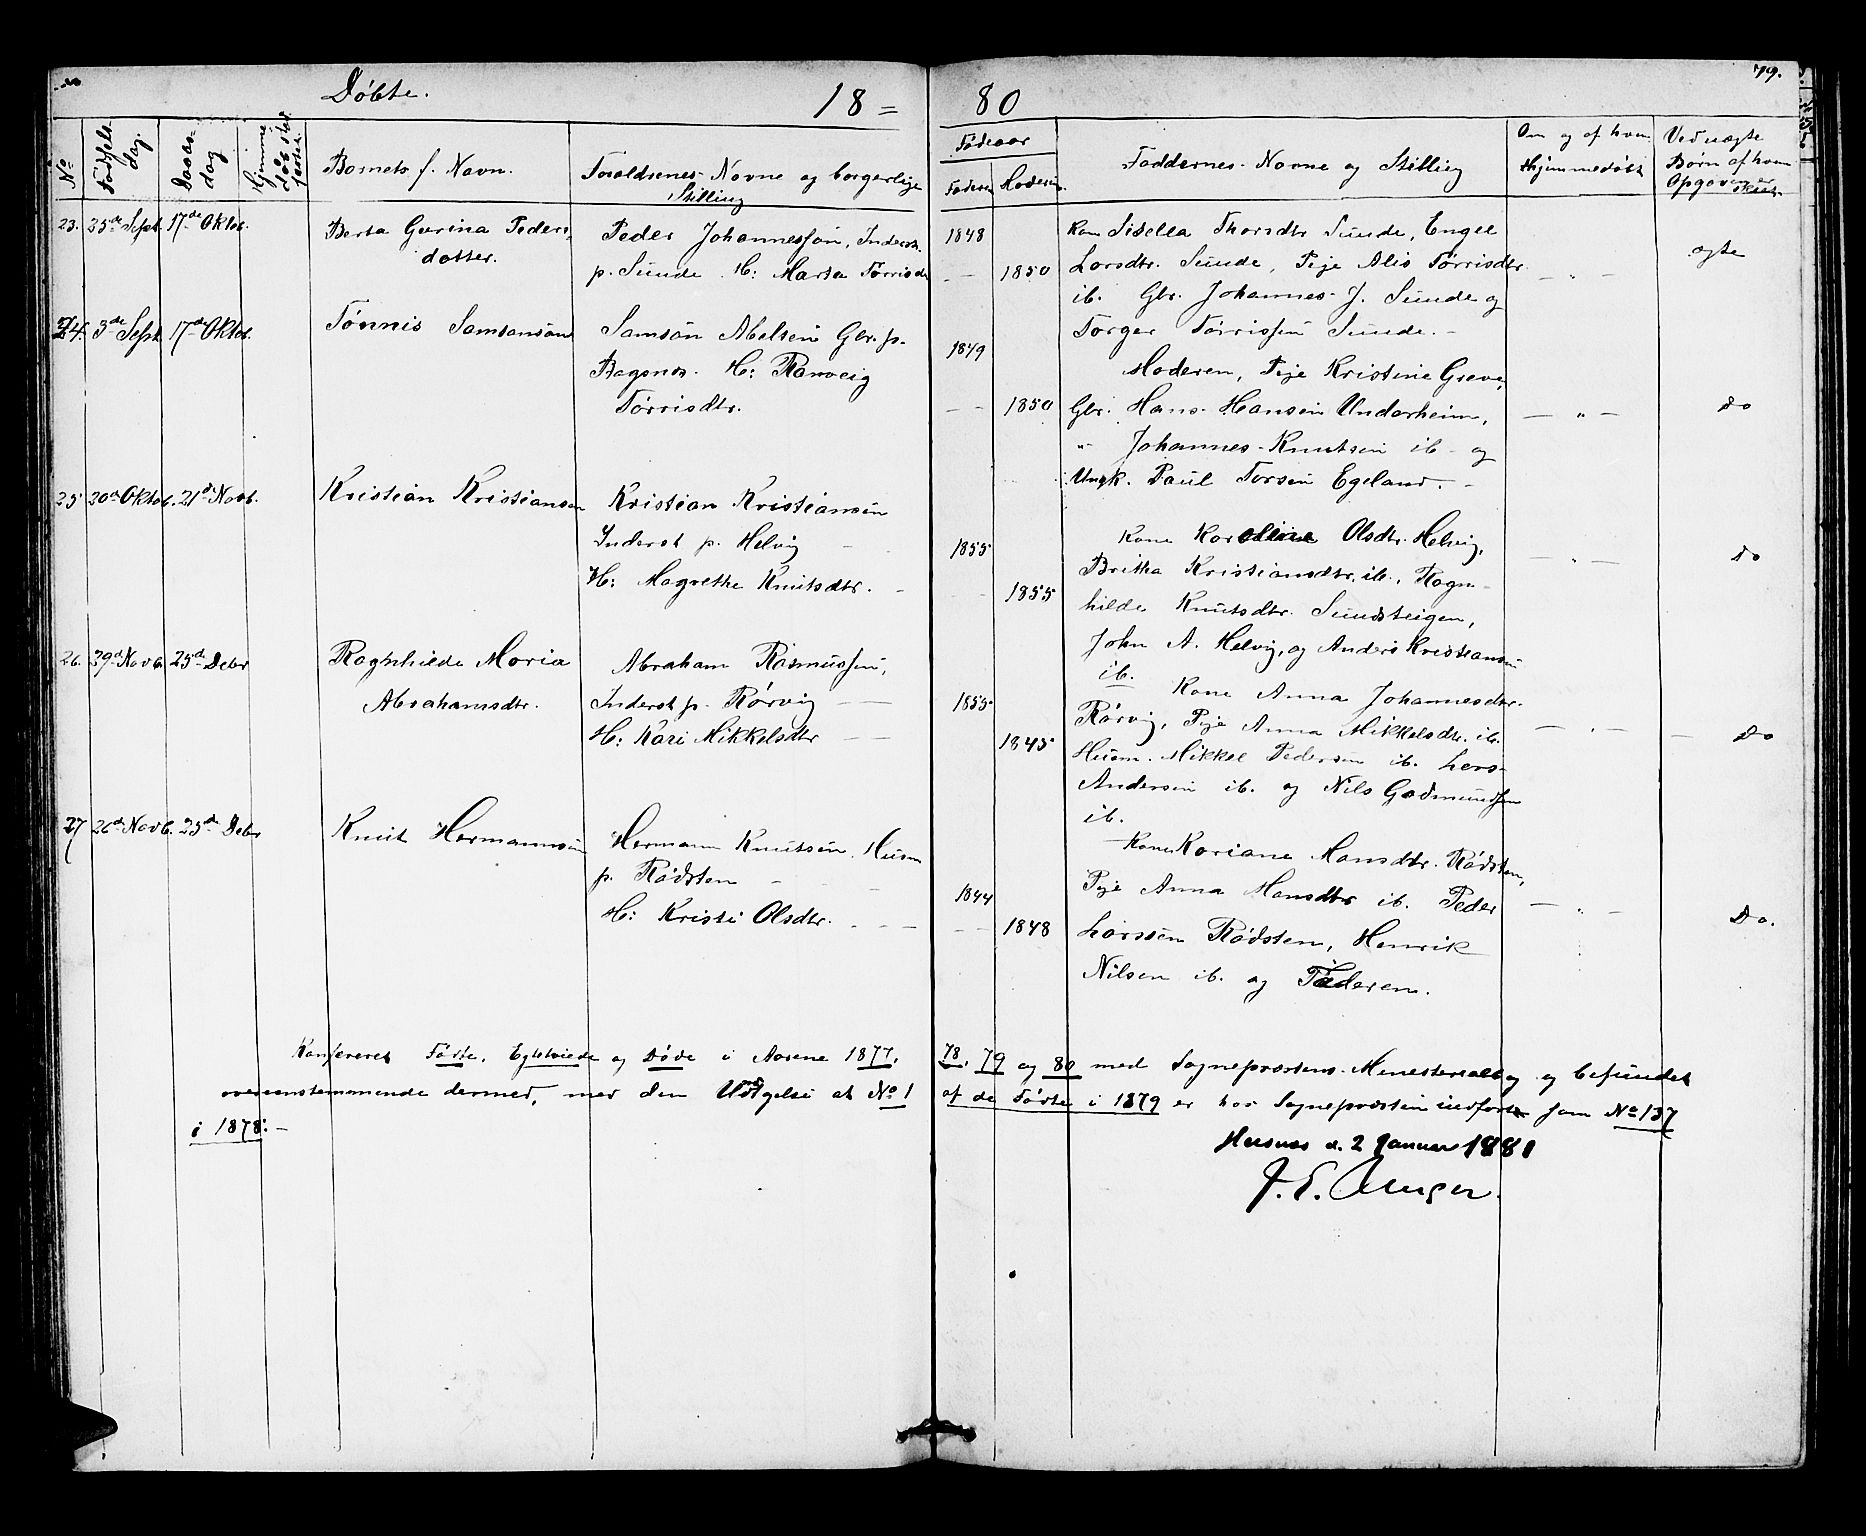 Döbte. 18 = 80 79.
No Födsels dag. Daabs- dag Hjemme döbt sted fæstet. Barnets f. Navn. Foreldrenes Navne og borgerlige Stilling Födeaar Faderen Moderen. Faddernes Navne og Stilling Om og af hvem Hjemmedöbt Ved uægte Börn af hvem Opgaven er skeet
23. 25de Sept. 17de Oktob. Berta Gurina Peders-
dotter.
Peder Johannesson, Inderst.
p. Sunde. H: Marta Törrisdr
1848
1850
Kone Sisella Thorsdtr Sunde, Engel
Larsdtr. Sunde, Pije Alis Törrisdtr.
ib. Gbr. Johannes J. Sunde og
Torger Törrissen Sunde. -
ægte
24. 3de Sept. 17de Oktob. Tönnis Samsonsön
Samson Abelsen Gbr. p.
Bagsnes. H: Ranveig
Törrisdtr.
1849
1850
Moderen, Pije Kristine Greve,
Gbr. Hans Hansen Undarheim,
" Johannes Knutsen ib. og
Ungk. Paul Torsen Egeland. -
Do
25 20de Oktob. 21de Novb. Kristian Kristiansen
Kristian Kristiansen
Inderst p. Helvig
H: Magrethe Knutsdtr.
1855
1855
Kone Karoline Olsdtr. Helvig,
Britha Kristiansdtr. ib., Ragn-
hilde Knutsdtr. Sundsteigen,
John A. Helvig, og Anders Kristiansen
ib.
Do
26. 29de Novb. 25de Debr Ragnhilde Maria
Abrahamsdtr.
Abraham Rasmussen,
Inderst p. Rörvig
H: Kari Mikkelsdtr
1855
1845
Kone Anna Johannesdtr.
Rörvig, Pije Anna Mikkelsdtr. ib.
Husm. Mikkel Pedersen ib. Lars
Andersen ib. og Nils Godmundsen
ib.
Do
27 26de Novb. 25de Debr Knut Hermannsen
Hermann Knutsen. Husm
p. Rödsten
H: Kristi Olsdtr.
1844
1848
Kone Kariane Hansdtr. Rödsten,
Pije Anna Hansdtr ib. Peder
Larssen Rödsten, Henrik
Nilsen ib. og Faderen.
Do.
Konfereret Födte, Egteviede og Döde i Aarene 1877, 78, 79 og 80 med Sognepræstens Ministerialbog og befundet
overensstemmende dermed, med den Undtagelse at No 1 af de Födte i 1879 er hos Sognepræsten indfört som No 137
i 1878: -
Husnes d. 2 Januar 1881
J. E. Unger.